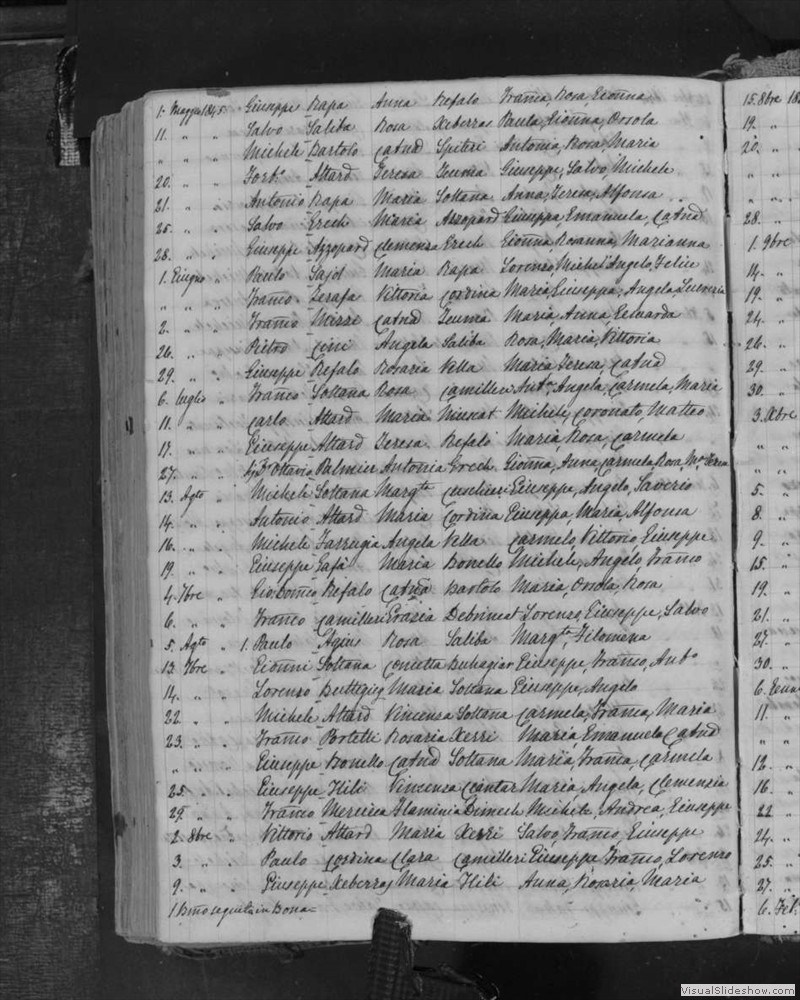 1. Maggio 1845 Giuseppe Rapa Anna Refalo Fran.ca, Rosa, Gionna
11. " " Salvo Saliba Rosa Xeberras Paula, Gionna, Orsola
" " " Michele Bartolo Catnd Spiteri Antonia, Rosa, Maria
20. " " Attard Teresa Zeuma Giuseppe, Salvo, Michele
21. " " Antonio Rapa Maria Soltana Anna, Teresa, Alfonsa
25. " " Salvo Grech Maria Azzopard Giuseppa, Emanuela, Catnd
28. " " Giuseppe Azzopard Clemenza Grech Gionna, Rosanna, Marianna
1. Giugno " Paulo Said Maria Rapa Lorenzo, Michel'Angelo, Felice
" " " Franco Zerafa Vittoria Cordina Maria, Giuseppa, Angela,
2. " " Franco Mizzi Catnd Zeuma Maria, Anna,
26. " " Pietro Cini Angela Saliba Rosa, Maria, Vittoria
29. " " Giuseppe Refalo Rosaria Vella Maria, Teresa, Catnd
6. Luglio " Franco Soltana Rosa Camilleri Anta, Angela, Carmela, Maria
11. " " Carlo Attard Maria Muscat Michele, Coronato, Matteo
17. " " Giuseppe Attard Teresa Refalo Maria, Rosa, Carmela
27. " " Ottavio Palmier Antonia Grech Gionna, Anna, Carmela, Rosa, Ma Teresa
13. Agto " Michele Soltana Margta Cuschieri Giuseppe, Angelo, Saverio
14. " " Antonio Attard Maria Cordina Giuseppa, Maria, Alfonsa
16. " " Michele Farrugia Angela Vella Carmelo, Vittorio, Giuseppe
19. " " Giuseppe Gafà Maria Bonello Michele, Angelo, Franco
4. 7bre " Refalo Catnd Bartolo Maria, Orsola, Rosa
6. " " Franco Camilleri Grazia Debrincat Lorenzo, Giuseppe, Salvo
5. Agto " 1. Paulo Agius Rosa Saliba Margta, Filomena
13. 7bre " Gionni Soltana Concetta Buhagiar Giuseppe, Franco, Anto
14. " " Lorenzo Buttegieg Maria Soltana Giuseppe, Angelo
22. " " Michele Attard Vincenza Soltana Carmela, Franca, Maria
23. " " Franco Portelli Rosaria Xerri Maria, Emanuela, Catnd
" " " Giuseppe Bonello Catnd Soltana Maria, Franca, Carmela
25. " " Giuseppe Hili Vincenza Cantar Maria, Angela, Clemenzia
29. " " Franco Mercieca Flaminia Dimech Michele, Andrea, Giuseppe
2. 8bre " Vittorio Attard Maria Xerri Salvo, Franco, Giuseppe
3. " " Paulo Cordina Clara Camilleri Giuseppe, Franco, Lorenzo
9. " " Giuseppe Xeberras Maria Hili Anna, Rosaria, Maria
15. 8bre 18
19. "
20. "
" "
" "
28. "
1. 9bre
14. "
19. "
24. "
26. "
29. "
30. "
3. Xbre
" "
" "
5. "
8. "
9. "
15. "
19. "
21. "
27. "
30. "
6.
11. "
" "
12. "
16. "
22 "
24. "
25. "
27. "
6.
VisualSlideshow.com